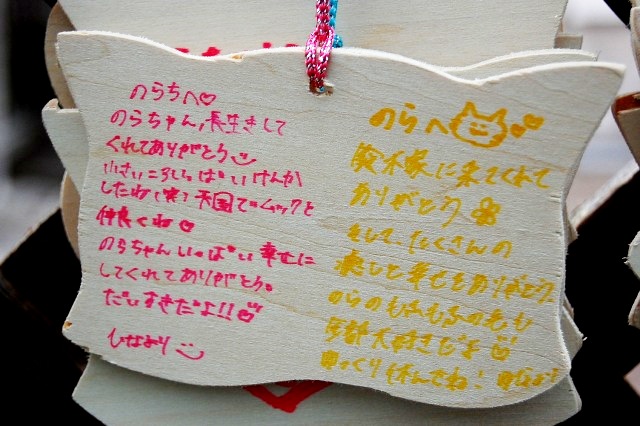 のらちへ♡
のらちゃん,長生きして
くれてありがとう
小さいころいっぱいけんか
したね(笑)天国でムックと
仲良くね♡
のらちゃんいっぱい幸せに
してくれてありがとう。
だいすきだよ!!
ひなより
のらへ
鈴木家に来てくれて
ありがとう
そして、たくさんの
癒しと幸せをありがとう
のらのもふもふのおも
全部大好きだよ
ゆっくり休んでね!